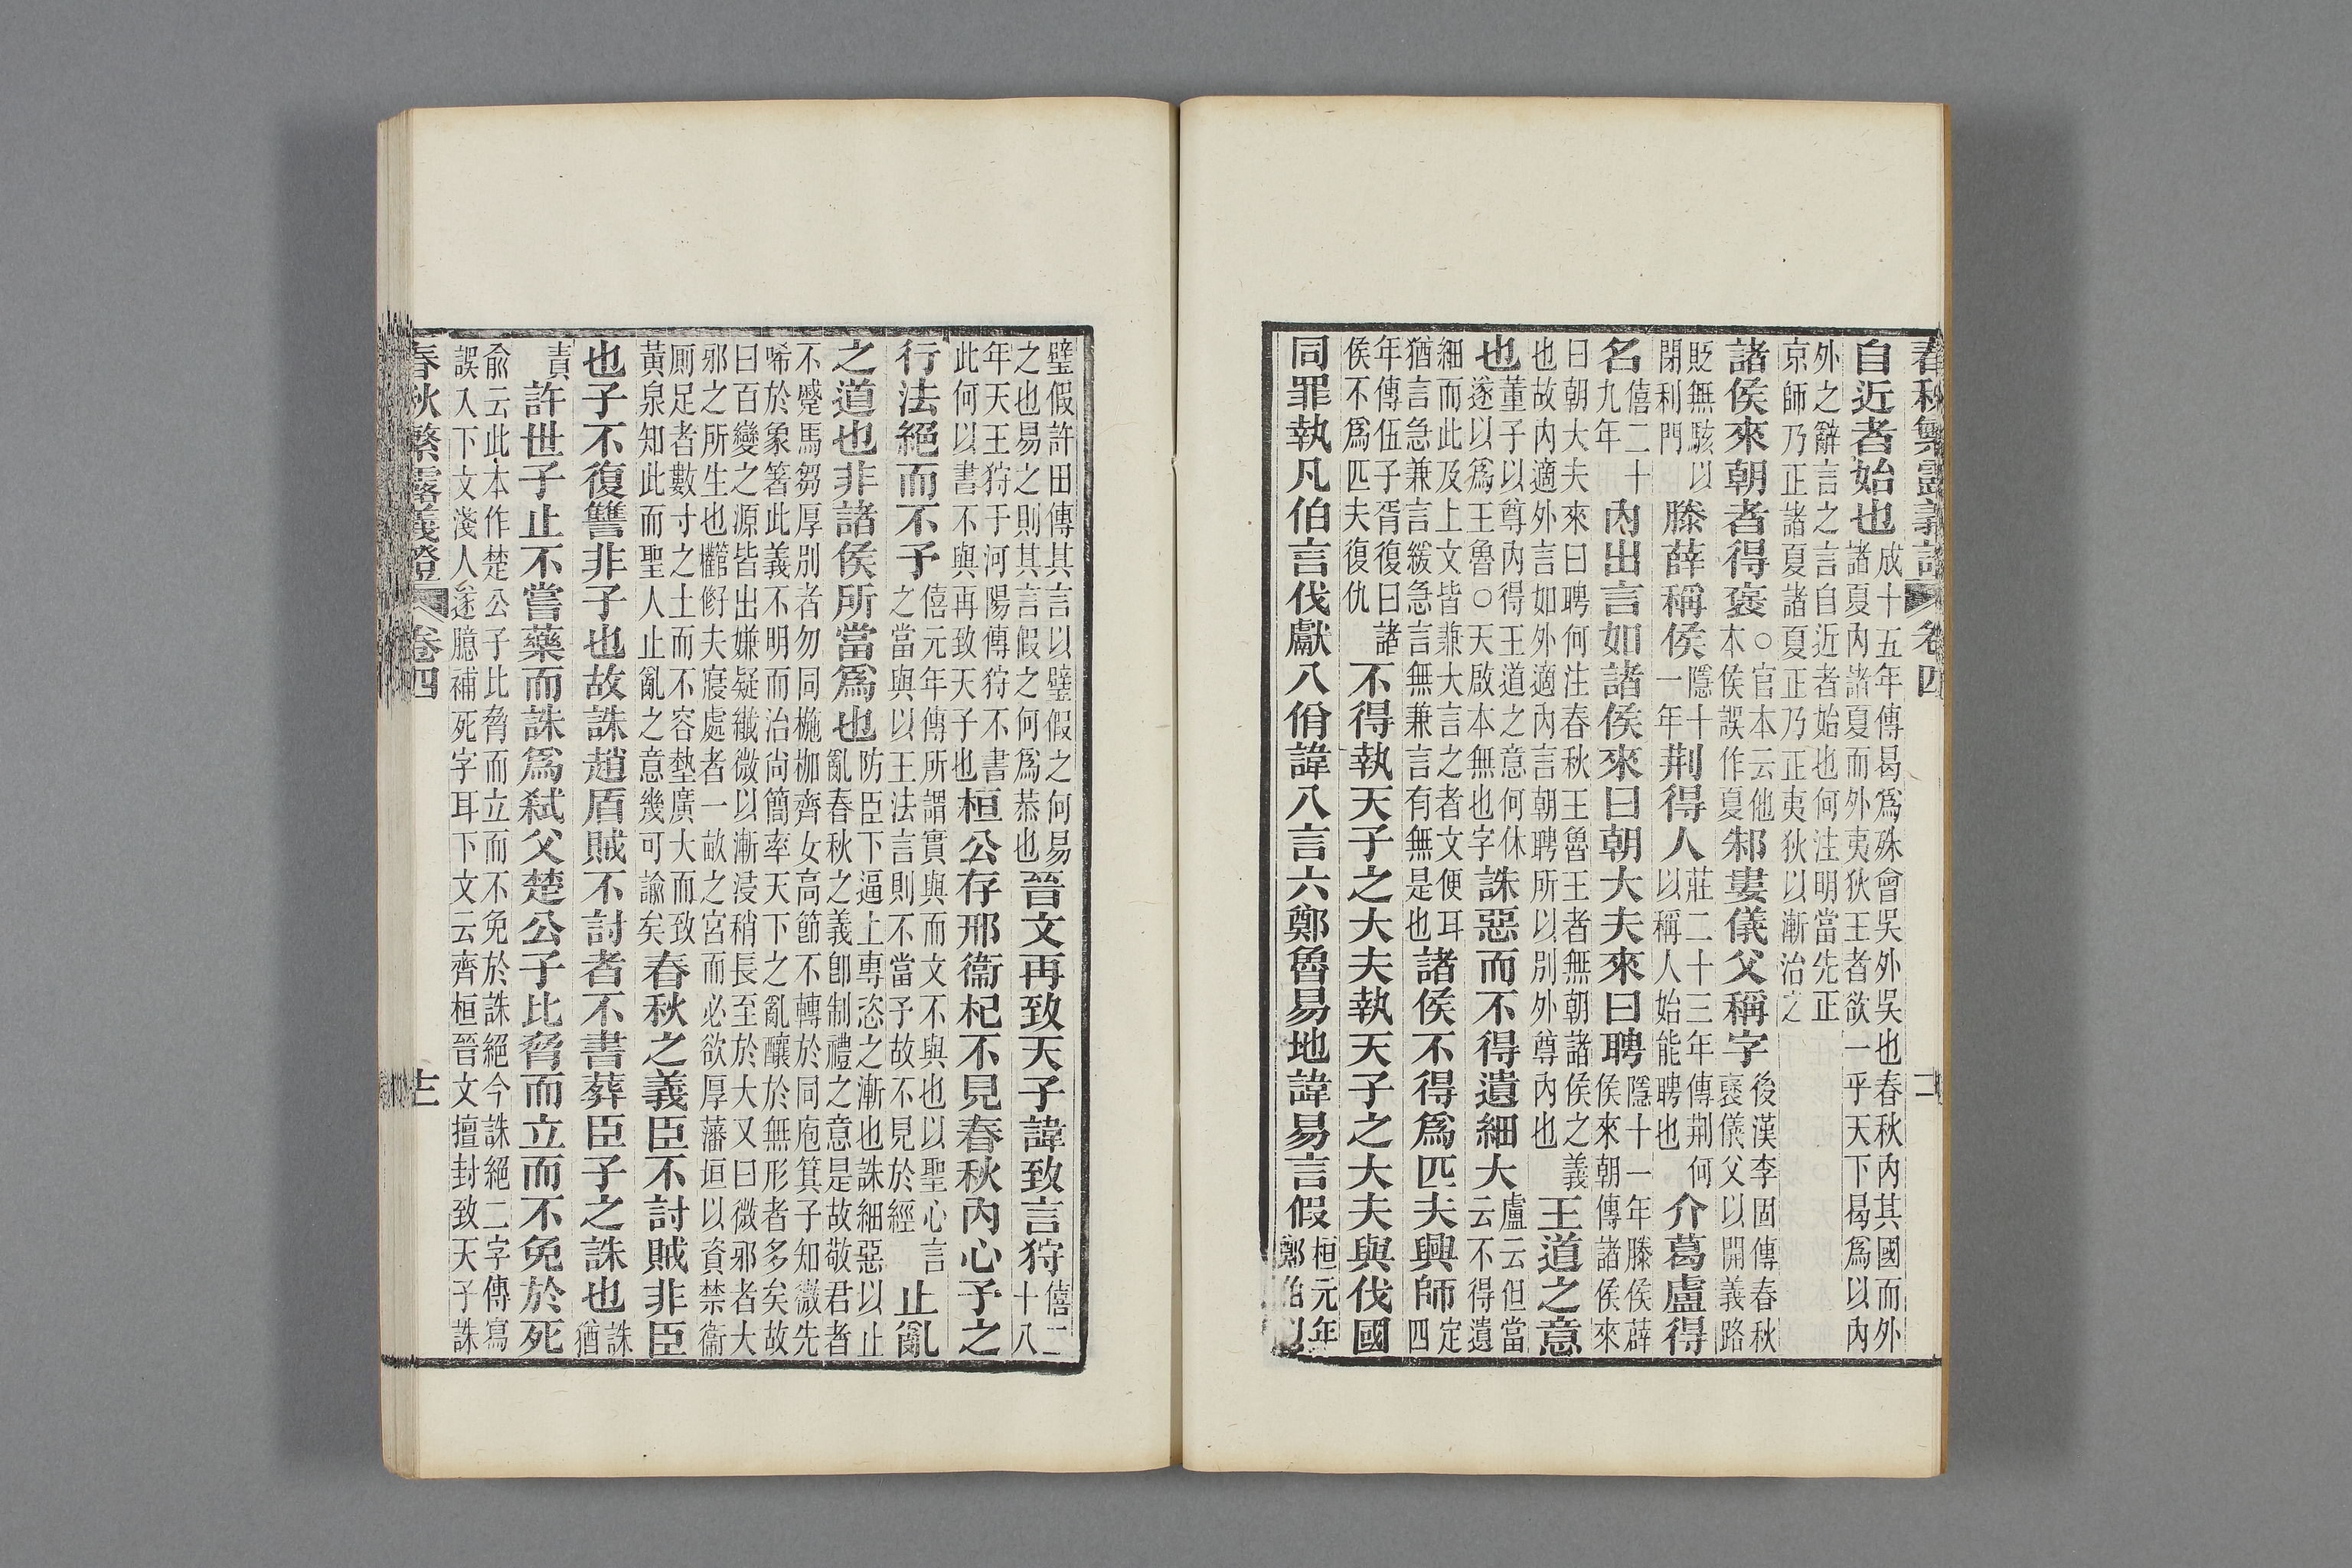 春秋繁露義證 卷四 十二
自近者始也成十五年傳曷爲殊會吳外吳也春秋內其國而外
諸夏內諸夏而外夷狄王者欲一乎天下曷爲以內
外之辭言之言自近者始也何注明當先正
京師乃正諸夏諸夏正乃正夷狄以漸治之
諸侯來朝者得褒○官本云他
本侯誤作夏邾婁儀父稱字後漢李固傳春秋
褒儀父以開義路
貶無駭以
閉利門滕薛稱侯隱十
一年荆得人莊二十三年傳荆何
以稱人始能聘也介葛盧得
名僖二十
九年內出言如諸侯來曰朝大夫來曰聘隱十一年滕侯薛
侯來朝傳諸侯來
曰朝大夫來曰聘何注春秋王魯王者無朝諸侯之義
也故內適外言如外適內言朝聘所以別外尊內也王道之意
也董子以尊內得王道之意何休
遂以爲王魯○天啟本無也字誅惡而不得遺細大盧云但當
云不得遺
細而此及上文皆兼大言之者文便耳
猶言急兼言緩急言無兼言有無是也諸侯不得爲匹夫興師定
四
年傳伍子胥復曰諸
侯不爲匹夫復仇不得執天子之大夫執天子之大夫與伐國
同罪執凡伯言伐獻八佾諱八言六鄭魯易地諱易言假桓元年
鄭伯以
璧假許田傳其言以璧假之何易
之也易之則其言假之何爲恭也晉文再致天子諱致言狩僖二
十八
年天王狩于河陽傳狩不書
此何以書不與再致天子也桓公存邢衞杞不見春秋內心予之
行法絕而不予僖元年傳所謂實與而文不與也以聖心言
之當與以王法言則不當予故不見於經止亂
之道也非諸侯所當爲也防臣下逼上專恣之漸也誅細惡以止
亂春秋之義卽制禮之意是故敬君者
不蹙馬芻厚別者勿同椸枷齊女高節不轉於同庖箕子知微先
唏於象箸此義不明而治尚簡率天下之亂釀於無形者多矣故
曰百變之源皆出嫌疑纖微以漸浸稍長至於大又曰微邪者大
邪之所生也欟脩夫寢處者一畝之宮而必欲厚藩垣以資禁衞
厠足者數寸之土而不容墊廣大而致
黃泉知此而聖人止亂之意幾可諭矣春秋之義臣不討賊非臣
也子不復讐非子也故誅趙盾賊不討者不書葬臣子之誅也誅
猶
責許世子止不嘗藥而誅爲弒父楚公子比脅而立而不免於死
俞云此本作楚公子比脅而立而不免於誅絕今誅絕二字傳寫
誤入下文淺人遂臆補死字耳下文云齊桓晉文擅封致天子誅
春秋繁露義證 卷四 十二